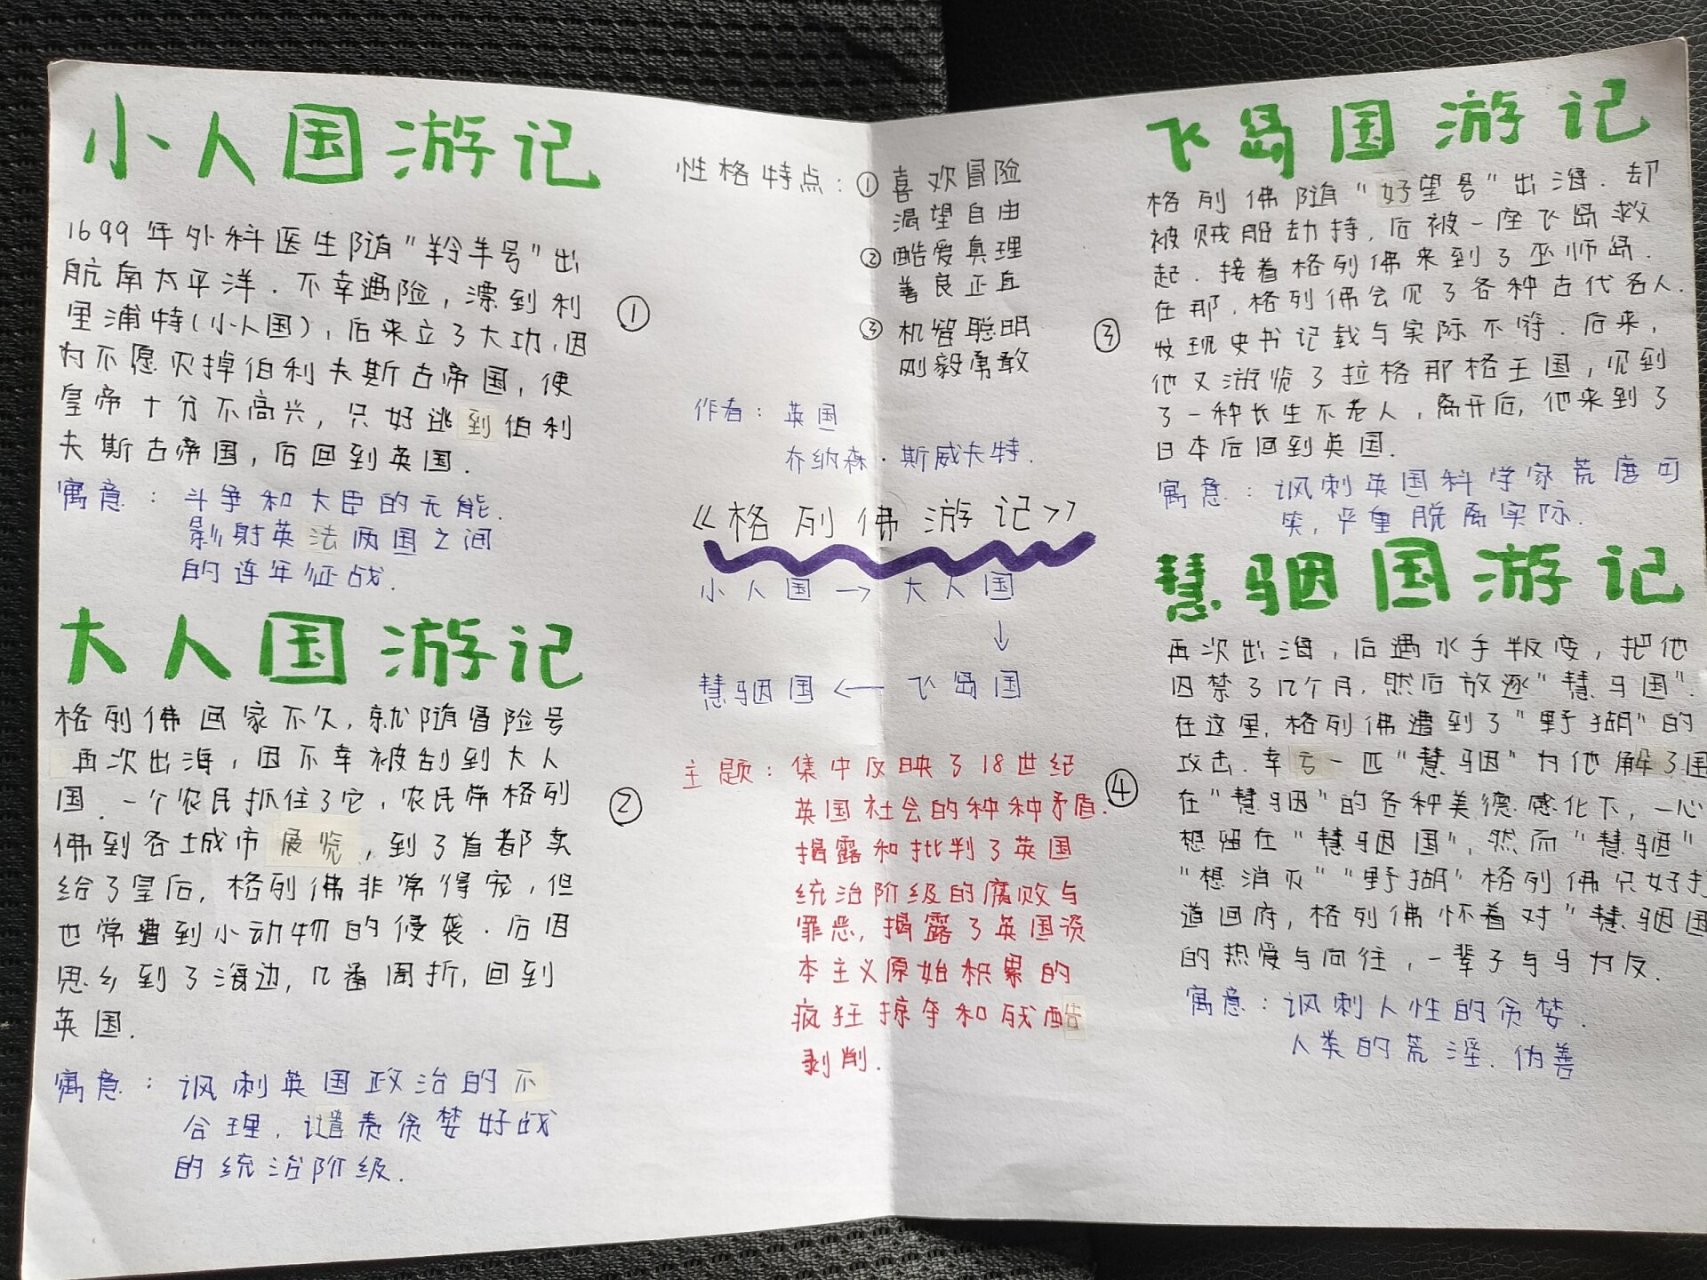 小人国游记
1699年外科医生随“羚羊号”出
航南太平洋.不幸遇险,漂到利
里浦特(小人国),后来立了大功,因
为不愿灭掉伯利夫斯古帝国,使
皇帝十分不高兴,只好逃到伯利
夫斯古帝国,后回到英国.
寓意:斗争和大臣的无能.
影射英法两国之间
的连年征战.
①
大人国游记
格列佛回家不久,就随冒险号
再次出海,因不幸被刮到大人
国.一个农民抓住了它,农民带格列
佛到各土城市展览,到了首都卖
给了皇后,格列佛非常得宠,但
也常遭到小动物的侵袭.后因
思乡到了海边,几番周折,回到
英国.
寓意:讽刺英国政治的不
合理,谴责贪婪好战
的统治阶级.
②
性格特点:①喜欢冒险
渴望自由
②酷爱真理
善良正直
③机智聪明
刚毅勇敢
作者:英国
乔纳森·斯威夫特.
《格列佛游记》
小人国→大人国
↓
慧骃国←飞岛国
主题:集中反映了18世纪
英国社会的种种矛盾.
揭露和批判了英国
统治阶级的腐败与
罪恶,揭露了英国资
本主义原始积累的
疯狂掠夺和残酷
剥削.
飞岛国游记
格列佛随“好望号”出海.却
被贼船劫持,后被一座飞岛救
起.接着格列佛来到了巫师岛.
在那,格列佛会见了各种古代名人.
发现史书记载与实际不符.后来,
他又游览了拉格那格王国,见到
了一种长生不老人,离开后,他来到了
日本后回到英国.
寓意:讽刺英国科学家荒唐可
笑,严重脱离实际.
③
慧骃国游记
再次出海,后遇水手叛变,把他
囚禁了几个月,然后放逐“慧马国”.
在这里,格列佛遭到了“野猢”的
攻击.幸亏一匹“慧骃”为他解了围
在“慧骃”的各种美德感化下,一心
想留在“慧骃国”,然而“慧骃”
“想消灭”“野猢”格列佛只好打
道回府,格列佛怀着对“慧骃国
的热爱与向往,一辈子与马为友.
寓意:讽刺人性的贪婪.
人类的荒淫.伪善
④